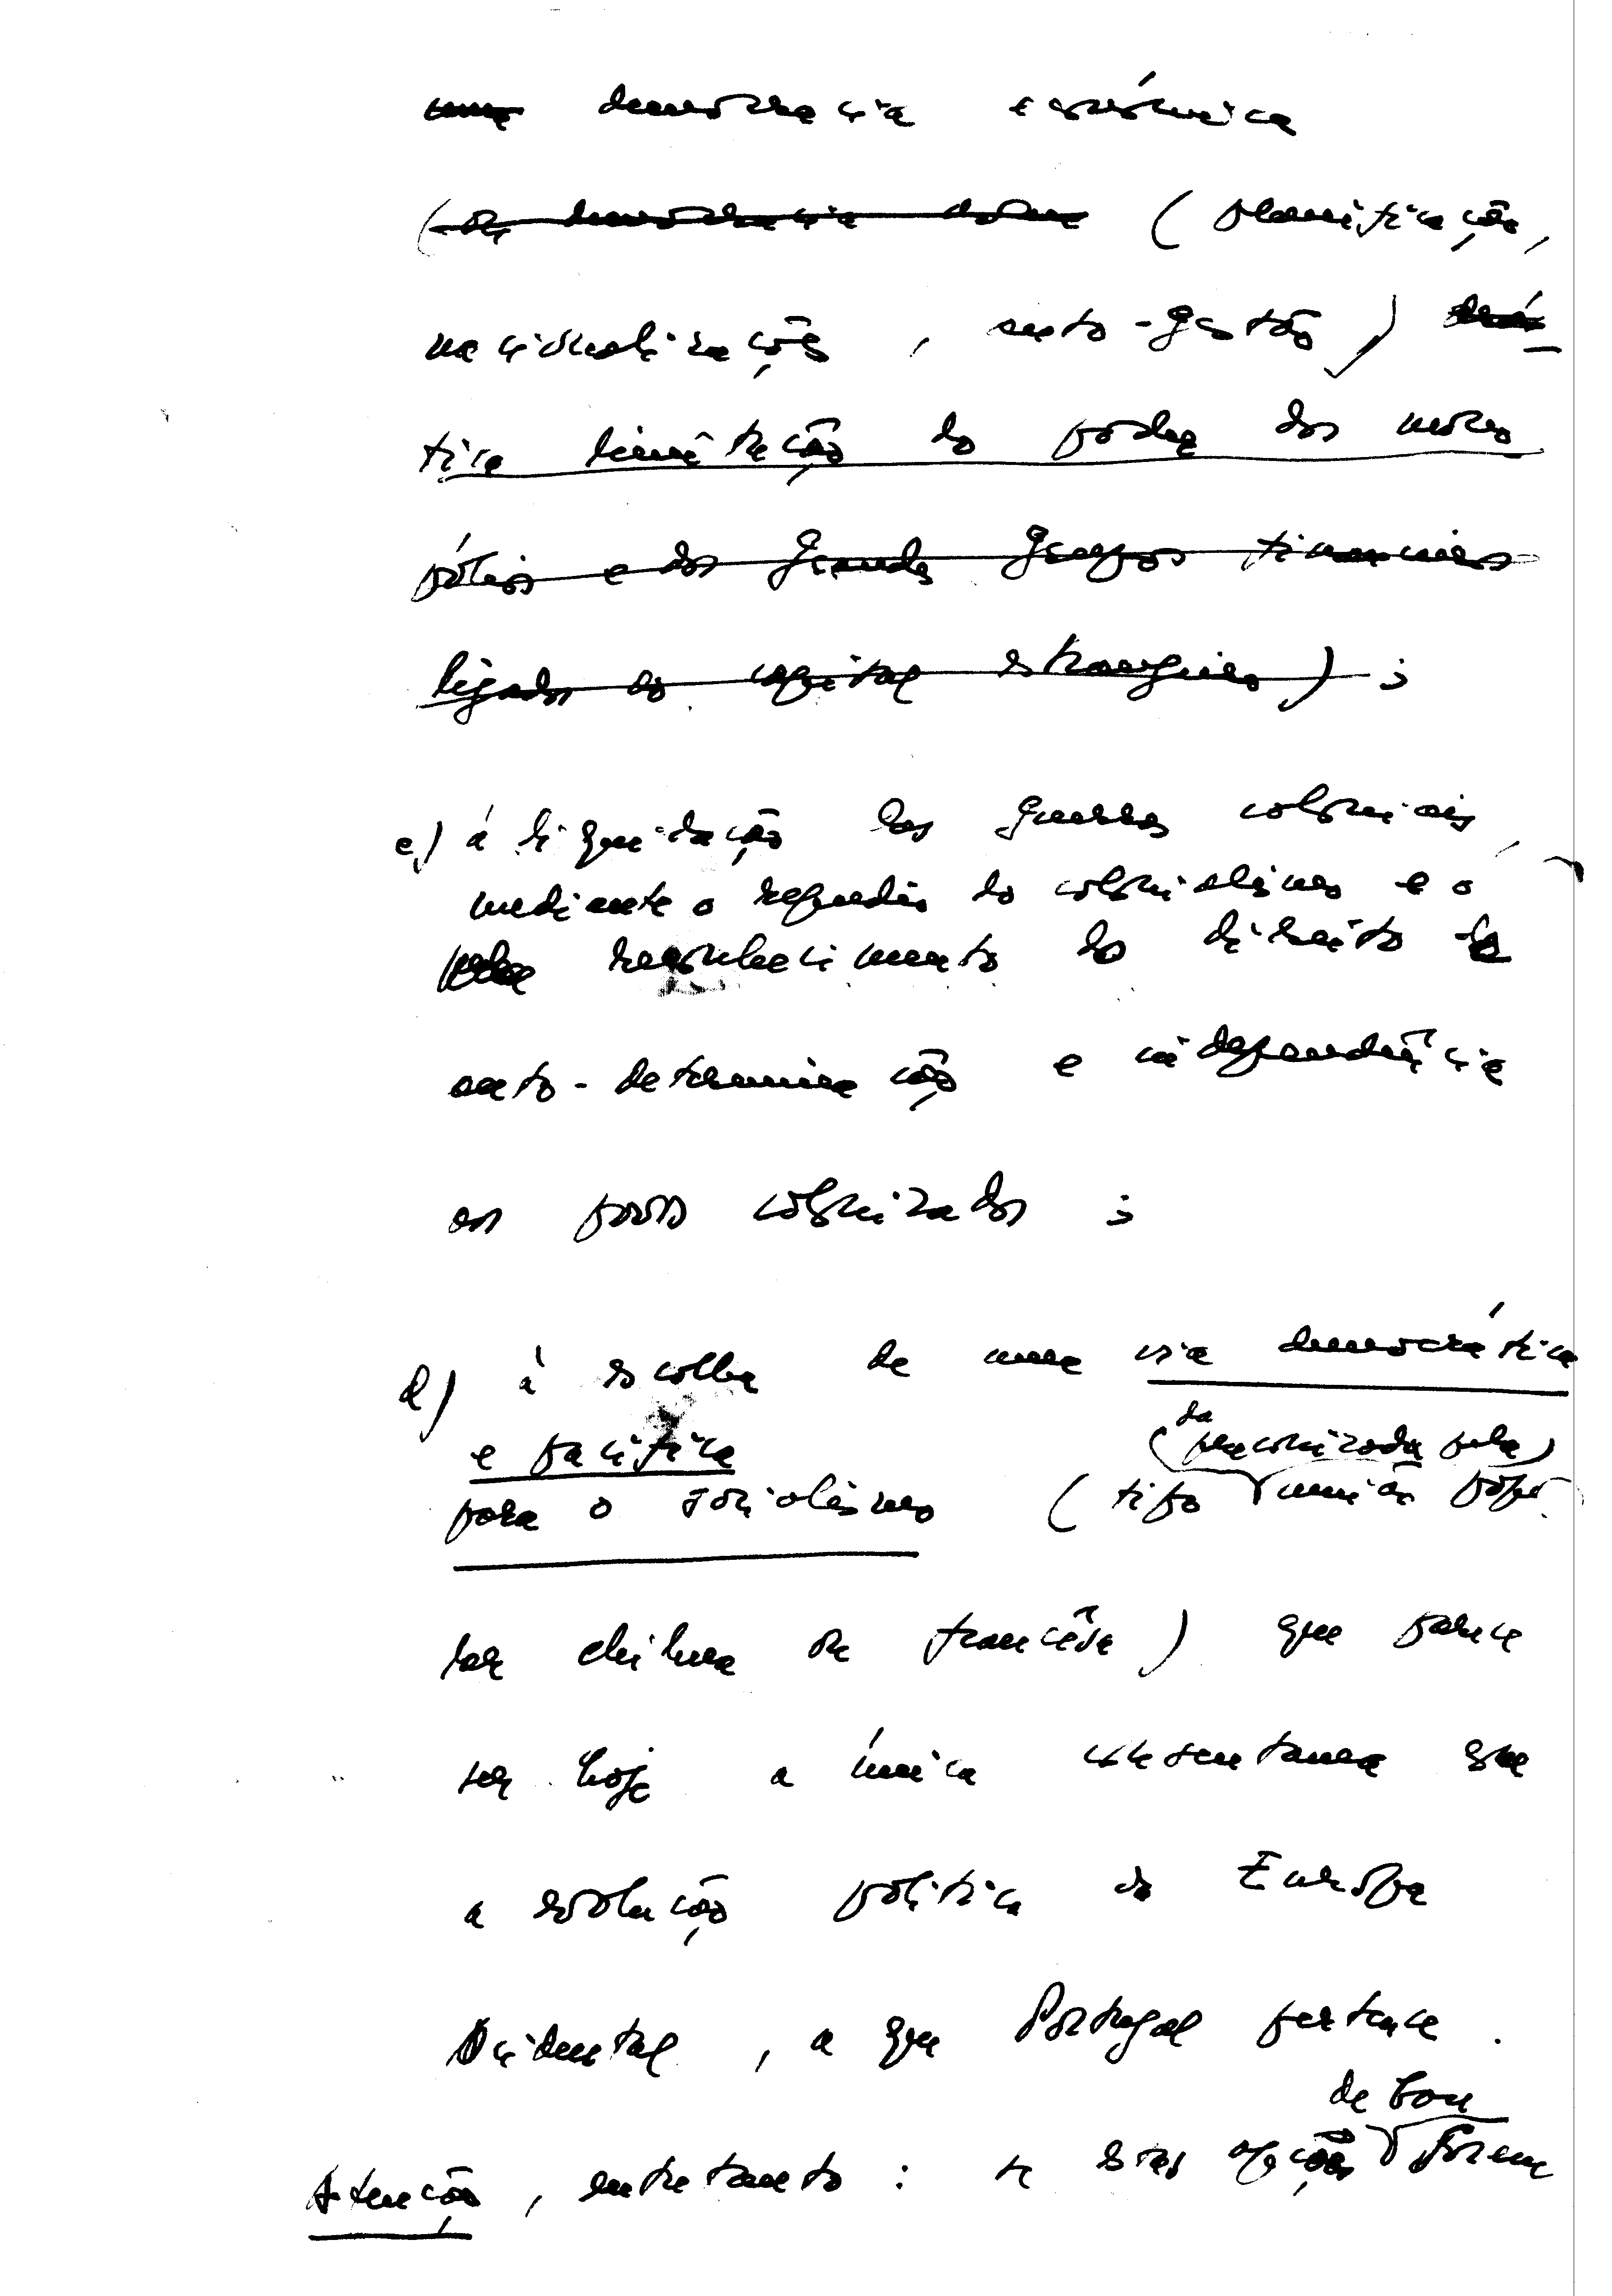 uma democracia económica
(da democracia (planificação,
nacionalizações, auto-gestão) drás-
tica limitação do poder dos mono
pólios e dos grandes grupos financeiros
ligados ao capital estrangeiro) ;
c) à liquidação das guerras coloniais,
mediante o repúdio do colonialismo e o
pelo reconhecimento do direito à
auto-determinação e independência
aos povos colonizados ;
d) à escolha de uma via democrática
e pacífica
(da preconizada pela)
para o socialismo (tipo união popu
lar chilena ou francêsa) que parece
ser hoje a única consentanea que
a evolução política da Europa
Ocidental, a que Portugal pertence.
de boa
Atenção, entretanto : se estas opções forem